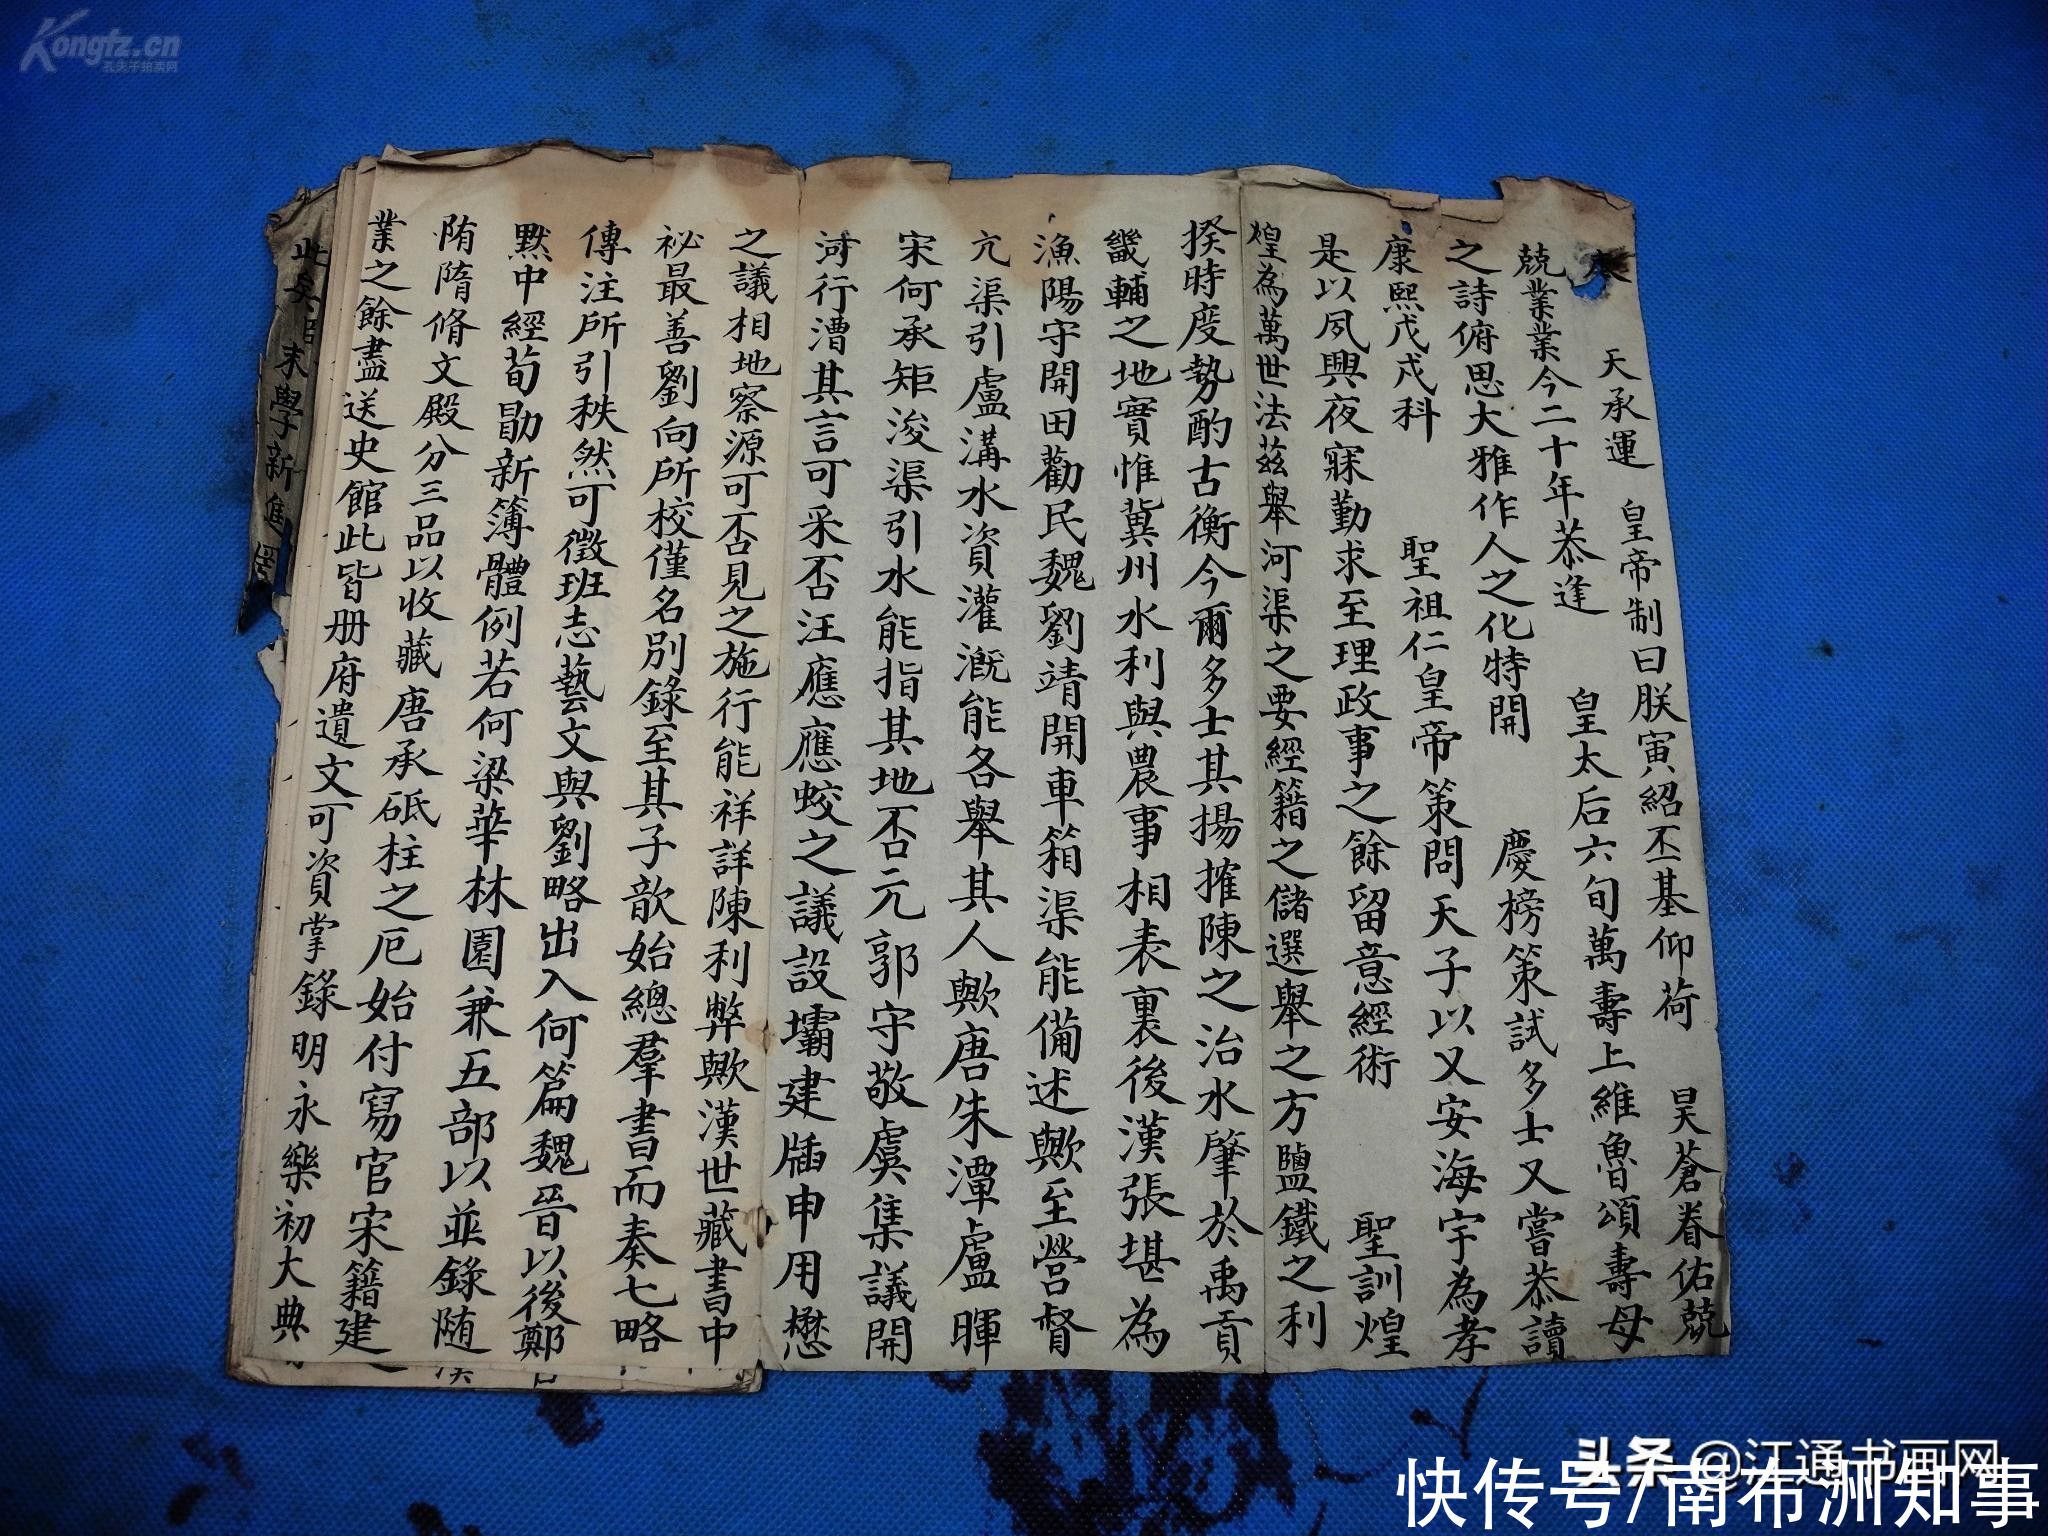 Kongfz.cn
孔夫子拍卖网
奉
天承運 皇帝制曰朕寅紹丕基仰荷 昊蒼眷佑兢
兢業業今二十年恭逢 皇太后六旬萬壽上維魯頌壽母
之詩俯思大雅作人之化特開 慶榜策試多士又嘗恭讀
康熙戊戌科 聖祖仁皇帝策問天子以乂安海宇為孝
是以夙興夜寐勤求至理政事之餘留意經術 聖訓煌
煌為萬世法茲舉河渠之要經籍之儲選舉之方鹽鐵之利
揆時度勢酌古衡今爾多士其揚搉陳之治水肇於禹貢
畿輔之地實惟冀州水利與農事相表裏後漢張堪為
漁陽守開田勸民魏劉靖開車箱渠能備述歟至營督
亢渠引盧溝水資灌溉能各舉其人歟唐朱潭盧暉
宋何承矩浚渠引水能指其地否元郭守敬虞集議開
河行漕其言可采否汪應應蛟之議設壩建牐申用懋
之議相地察源可否見之施行能祥詳陳利弊歟漢世藏書中
祕最善劉向所校僅名別錄至其子歆始總羣書而奏七略
傳注所引秩然可徵班志藝文與劉略出入何篇魏晉以後鄭
默中經荀勖新簿體例若何梁華林園兼五部以並錄随
陏隋脩文殿分三品以收藏唐承砥柱之厄始付寫官宋籍建
業之餘盡送史館此皆册府遺文可資掌錄明永樂初大典
此矣
末學新進
头条 @江通书画网
快传号/南布洲知事